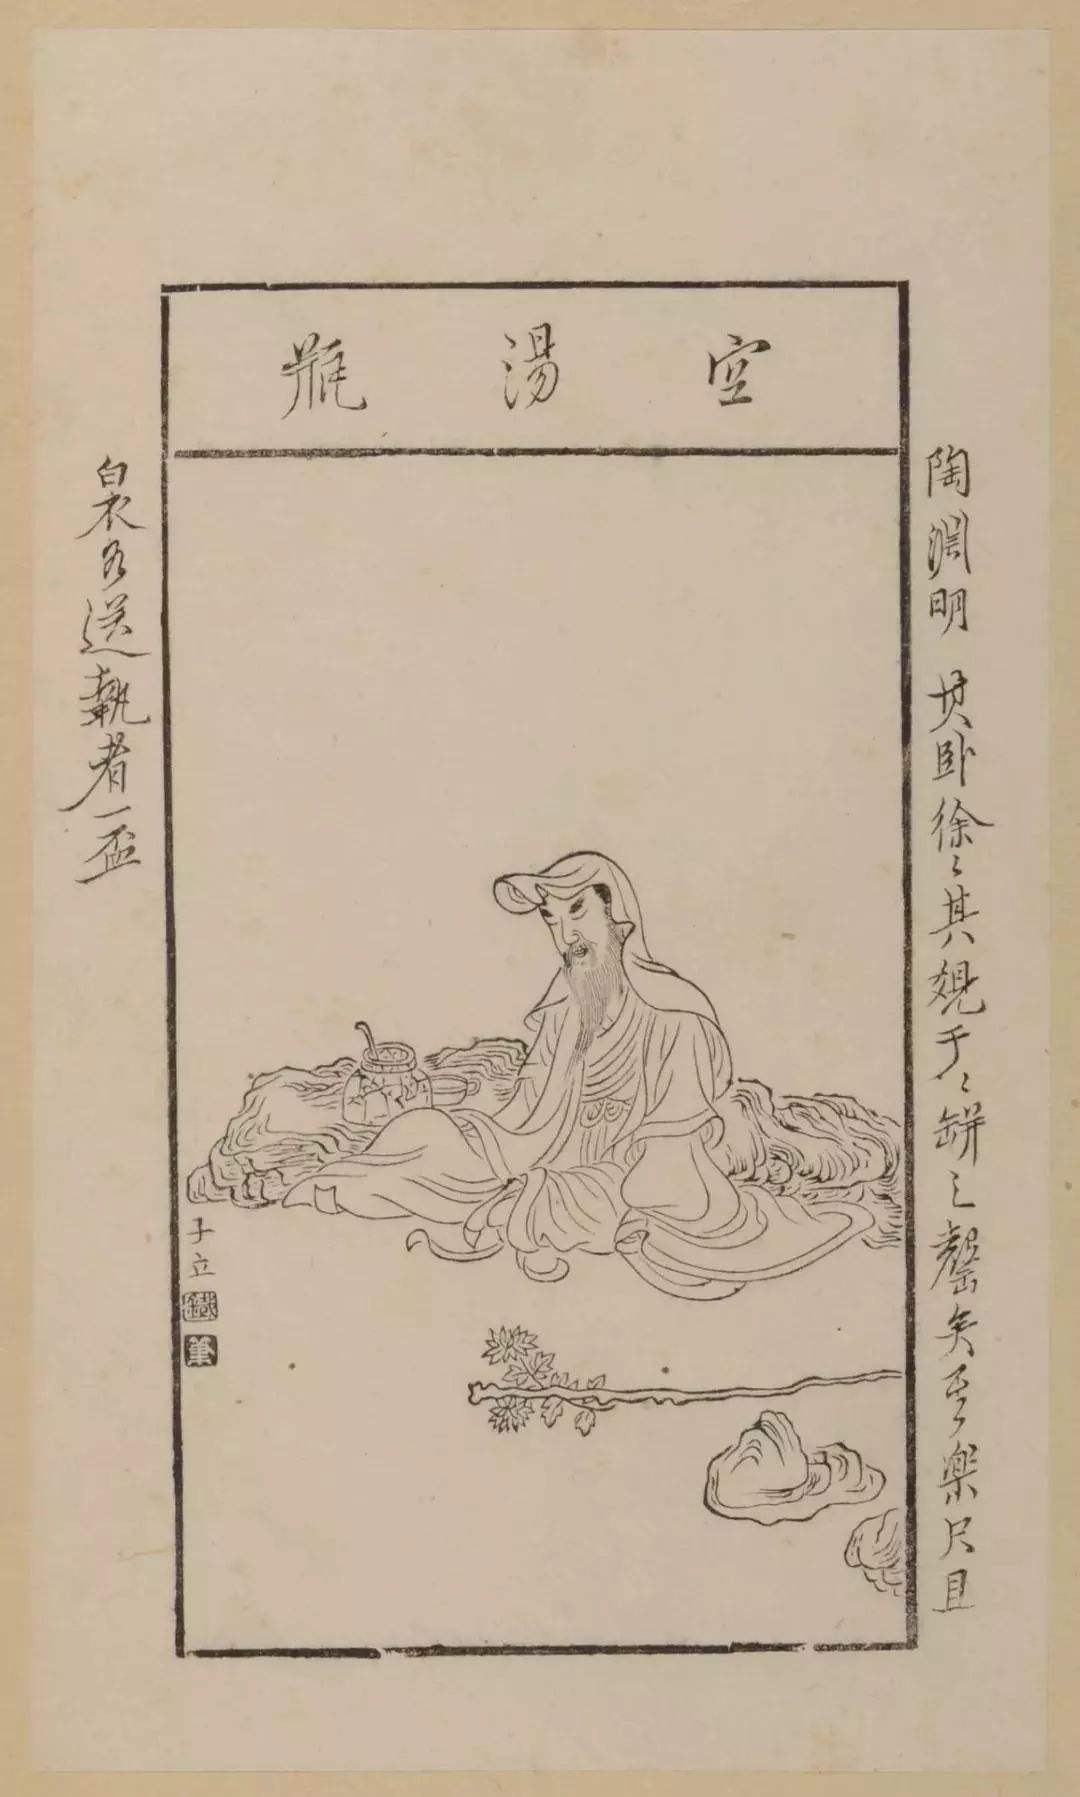 空湯瓶
陶淵明 其卧徐〻其覺于〻缾之罄矣其樂只且
白衣各送執者一盃
子立
鐵
筆